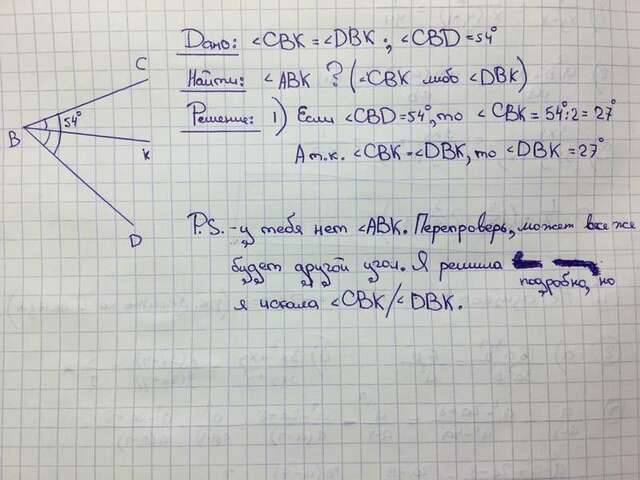 Дано: ∠CBK = ∠DBK; ∠CBD = 54°
Найти: ∠ABK ? (∠CBK либо ∠DBK)
Решение: 1) Если ∠CBD = 54°, то ∠CBK = 54°:2 = 27°
А т.к. ∠CBK = ∠DBK, то ∠DBK = 27°
C
54°
B
K
D
P.S. - у тебя нет ∠ABK. Перепроверь, может все же
будет другой угол. Я решила
подробно, но
я искала ∠CBK/∠DBK.